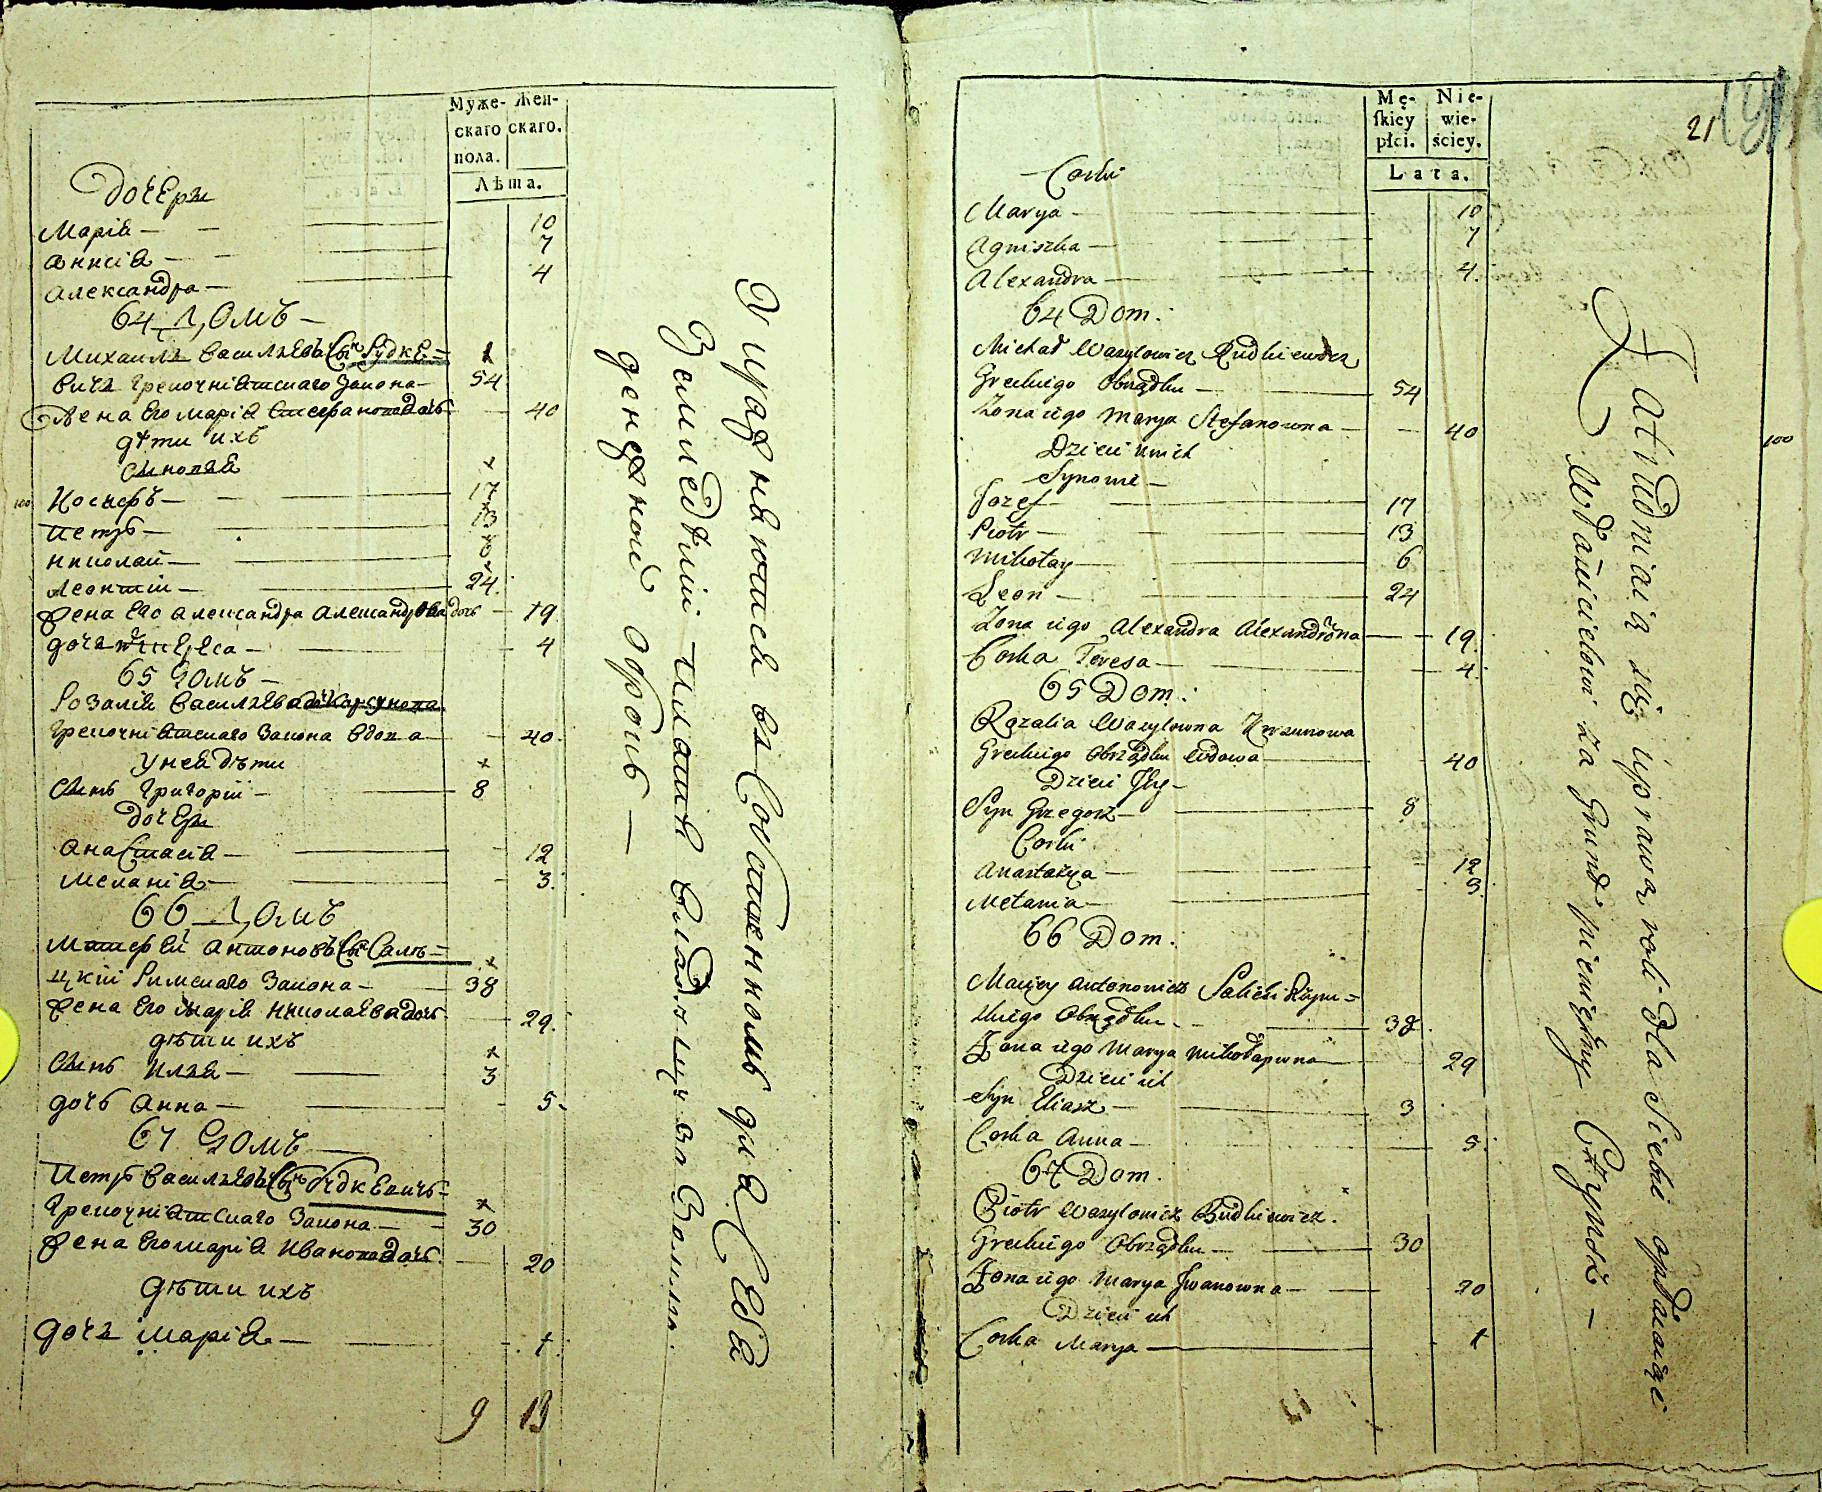 Муже- Жен-
скаго скаго.
пола.
Лѣта.
Дочери
Маріа — 10
Аннсіа — 7
Александра — 4
64 Домъ —
Михаилъ Васильевъ Сынъ Рудке=
вичъ Грекочніатскаго Закона — 54
Жена Его Маріа Стефановадочь — 40
дѣти ихъ
Сыновья
Иосифъ — 17
Петръ — 13
Николай — 6
Леонтій — 24
Жена Его Александра Александровадочь — 19
дочь Тереса — 4
65 Домъ —
Розаліа Васильевадочь Карсунова
Грекочніатскаго Закона Вдова — 40
У неа дѣти
Сынъ Григорій — 8
Дочери
Анастасіа — 12
Меланіа — 3
66 Домъ
Матфей Антоновъ Сынъ Салъ=
цкій Римскаго Закона — 38
Жена Его Маріа Николаевадочь — 29
дѣти ихъ
Сынъ Илья — 3
дочь Анна — 5
67 Домъ —
Петръ Васильевъ Сынъ Рудкевичъ
Грекочніатскаго Закона — 30
Жена Его Маріа Ивановадочь — 20
дѣти ихъ
дочь Маріа — 1
9 13
Упражняютса въ Собственномъ для Себа
Земледѣліи — Платитъ владѣльцу за Землю
денежной оброкъ —
Mę- Nie-
skiey wie-
płci. ściey.
Lata.
21
Corki
Marya — 10
Agniszka — 7
Alexandra — 4
64 Dom.
Michał Wasylowicz Rudkiewicz
Greckiego Obrządku — 54
Zona iego Marya Stefanowna — 40
Dzieci u nich
Synowie —
Jozef — 17
Piotr — 13
Mikołay — 6
Leon — 24
Zona iego Alexandra Alexandrowna — 19
Corka Teresa — 4
65 Dom.
Rozalia Wasylowna Karsunowa
Greckiego Obrządku Wdowa — 40
Dzieci Jey —
Syn Grzegorz — 8
Corki
Anastazya — 12
Melania — 3
66 Dom.
Maciey Antonowicz Salicki Rzym=
skiego Obrządku — 38
Zona iego Marya Mikołaiewna — 29
Dzieci ich
Syn Eliasz — 3
Corka Anna — 5
67 Dom.
Piotr Wasylowicz Rudkiewicz.
Greckiego Obrządku — 30
Zona iego Marya Jwanowna — 20
Dzieci ich
Corka Marya — 1
Zatrudniaią się uprawą roli dla Siebie opłacaiąc
Właścicielowi za Grunt pieniężny Czynsz —
100